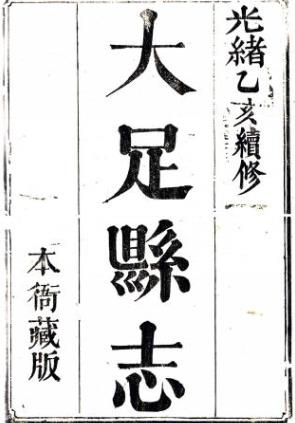 光緒乙亥續修
大足縣志
本衙藏版